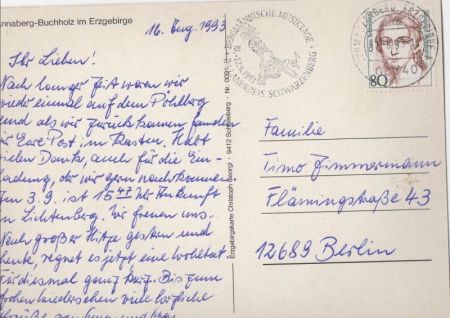 nnaberg-Buchholz im Erzgebirge
16. Aug. 1993
Ihr Lieben!
Nach langer Zeit waren wir
wieder einmal auf dem Pöhlberg
und als wir zurückkamen fanden
wir Eure Post im Kasten. Habt
vielen Dank, auch für die Ein-
ladung, der wir gern nachkommen
Am 3.9. ist 15 47 Uhr Ankunft
in Lichtenberg. Wir freuen uns.
Nach großer Hitze gestern und
heute, regnet es jetzt eine Wohltat.
Für diesmal ganz kurz. Bis zum
frohen Wiedersehen viele herzliche
Grüße von
Erzgebirgskarte Christoph Georgi · 9412 Schneeberg · Nr. 0091
BERGMÄNNISCHE MUSIKTAGE
10.-12.9.1993
LANDKREIS SCHWARZENBERG
80
Familie
Timo Zimmermann
Flämingstraße 43
12689 Berlin